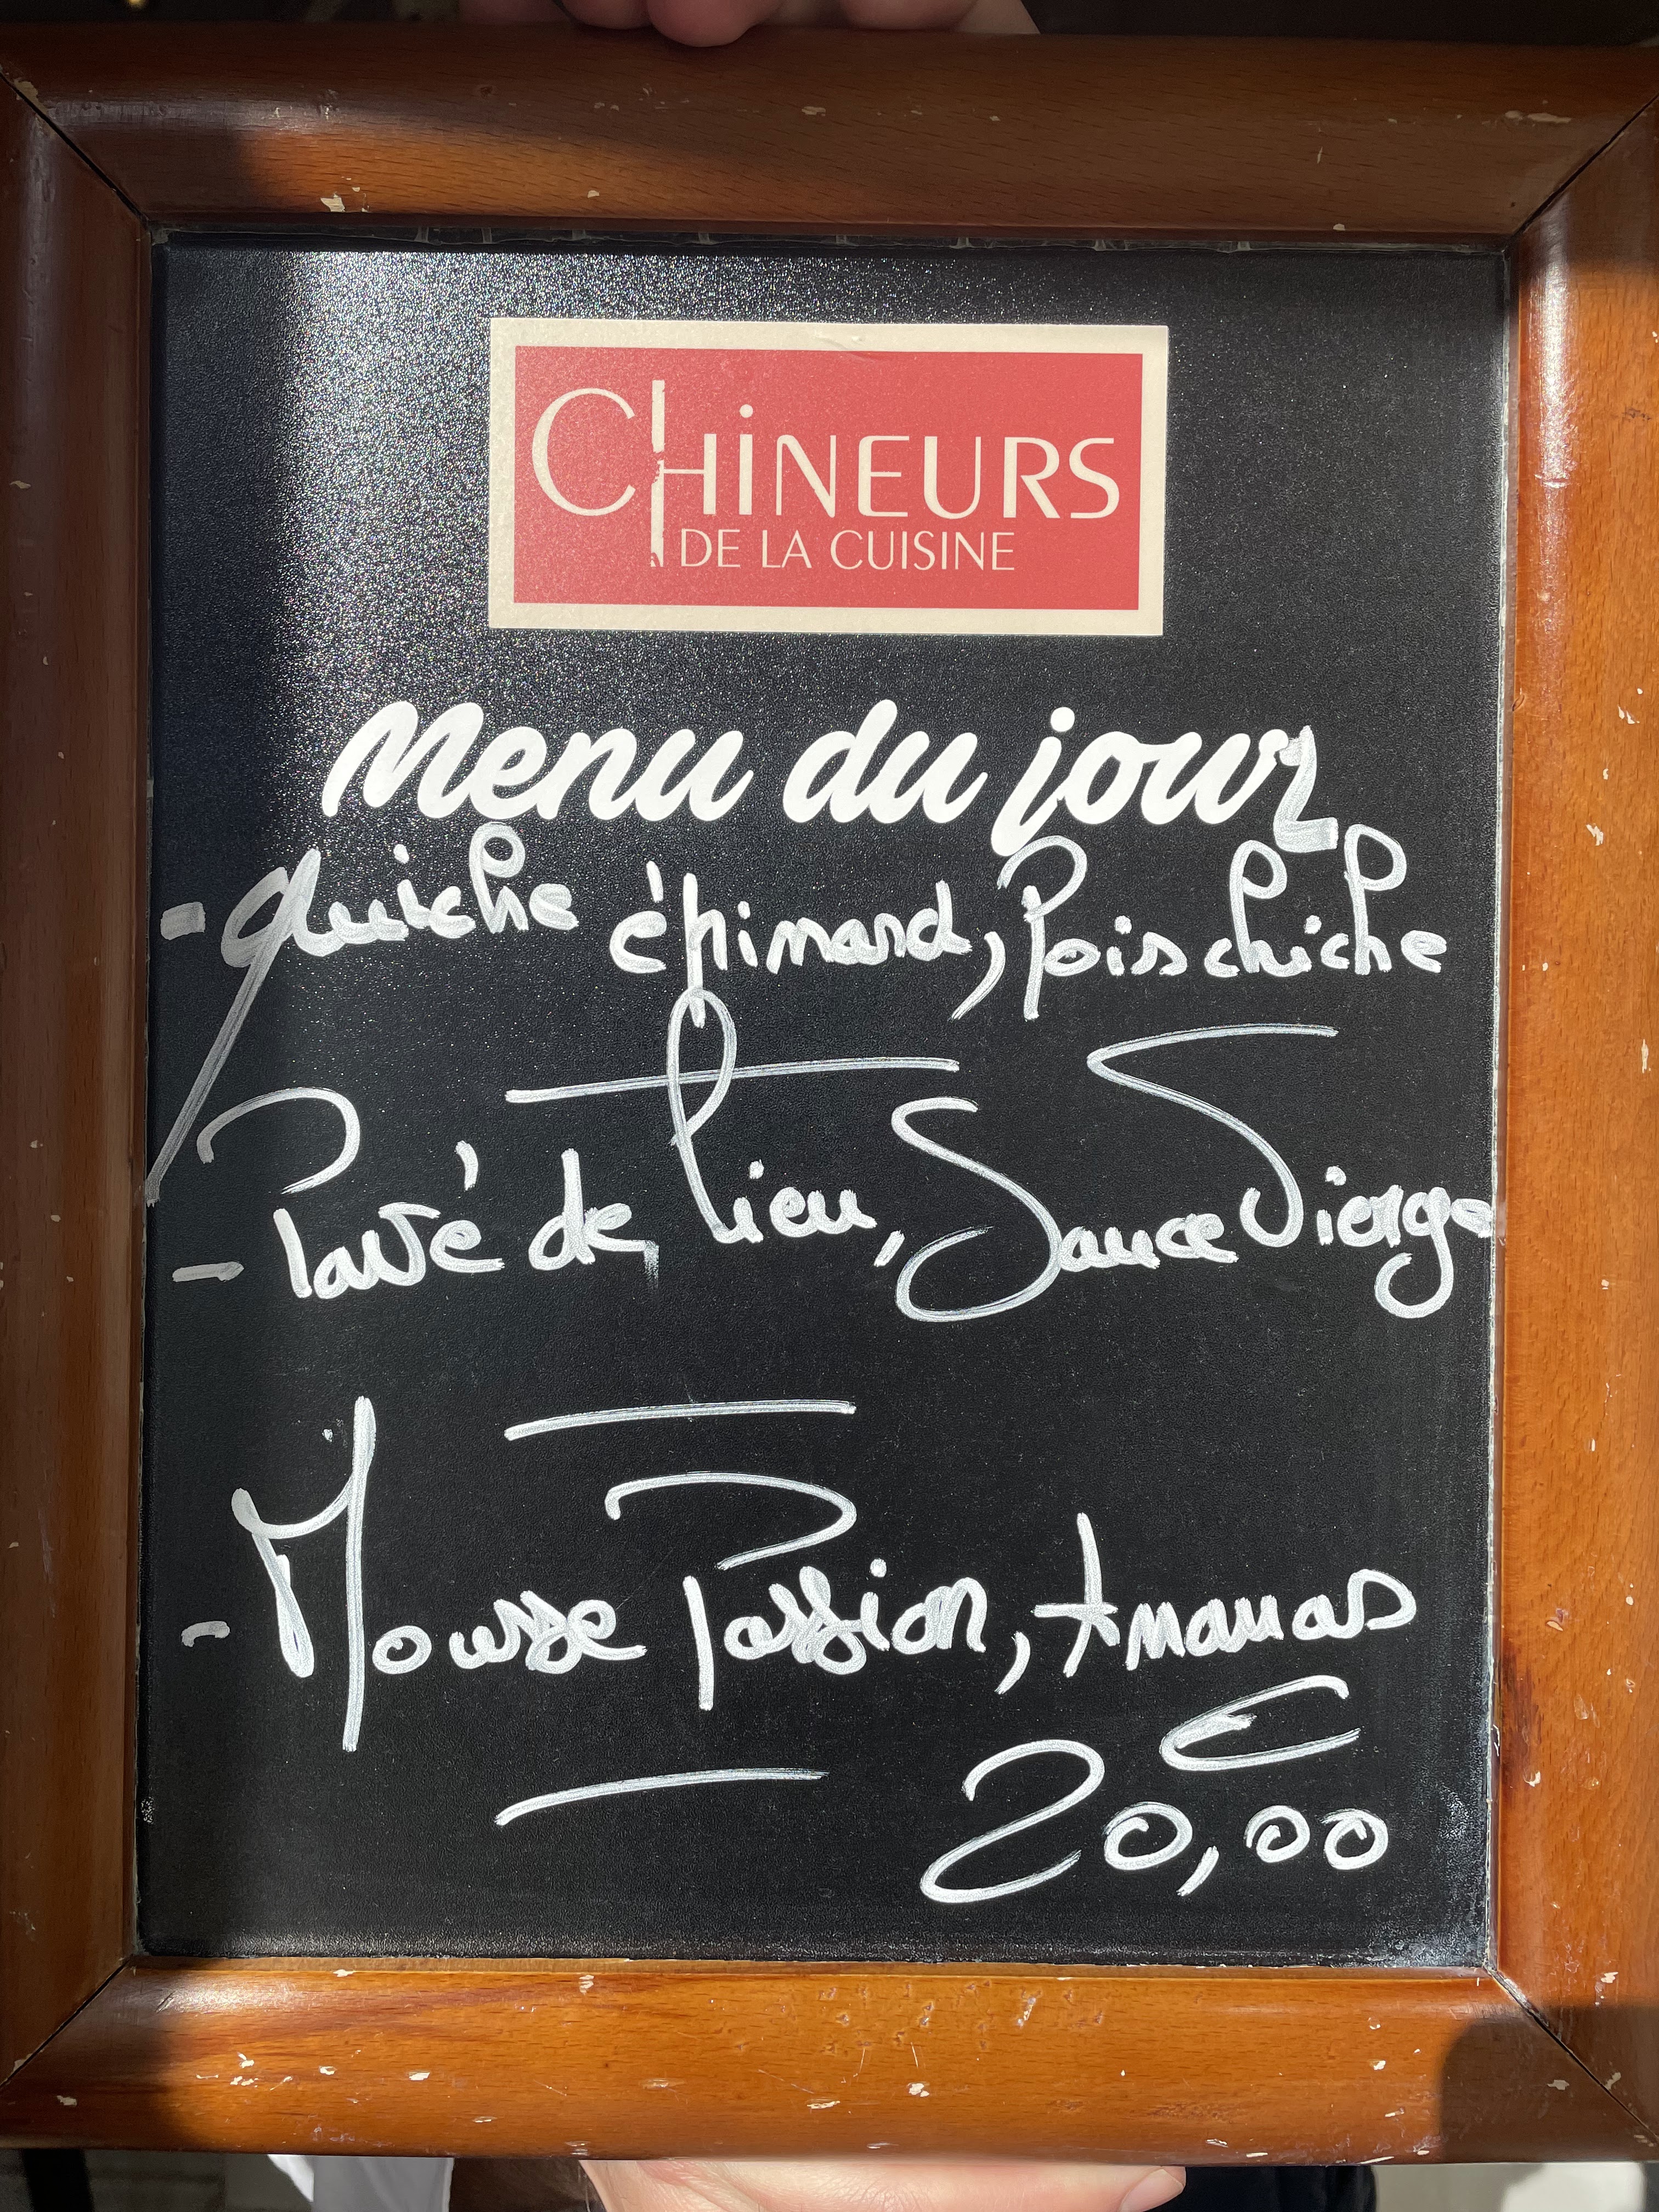 CHINEURS
DE LA CUISINE
Menu du jour
- quiche épinard, Pois chiche
- Pavé de lieu, Sauce Vierge
- Mousse Passion, Ananas
€
20,00